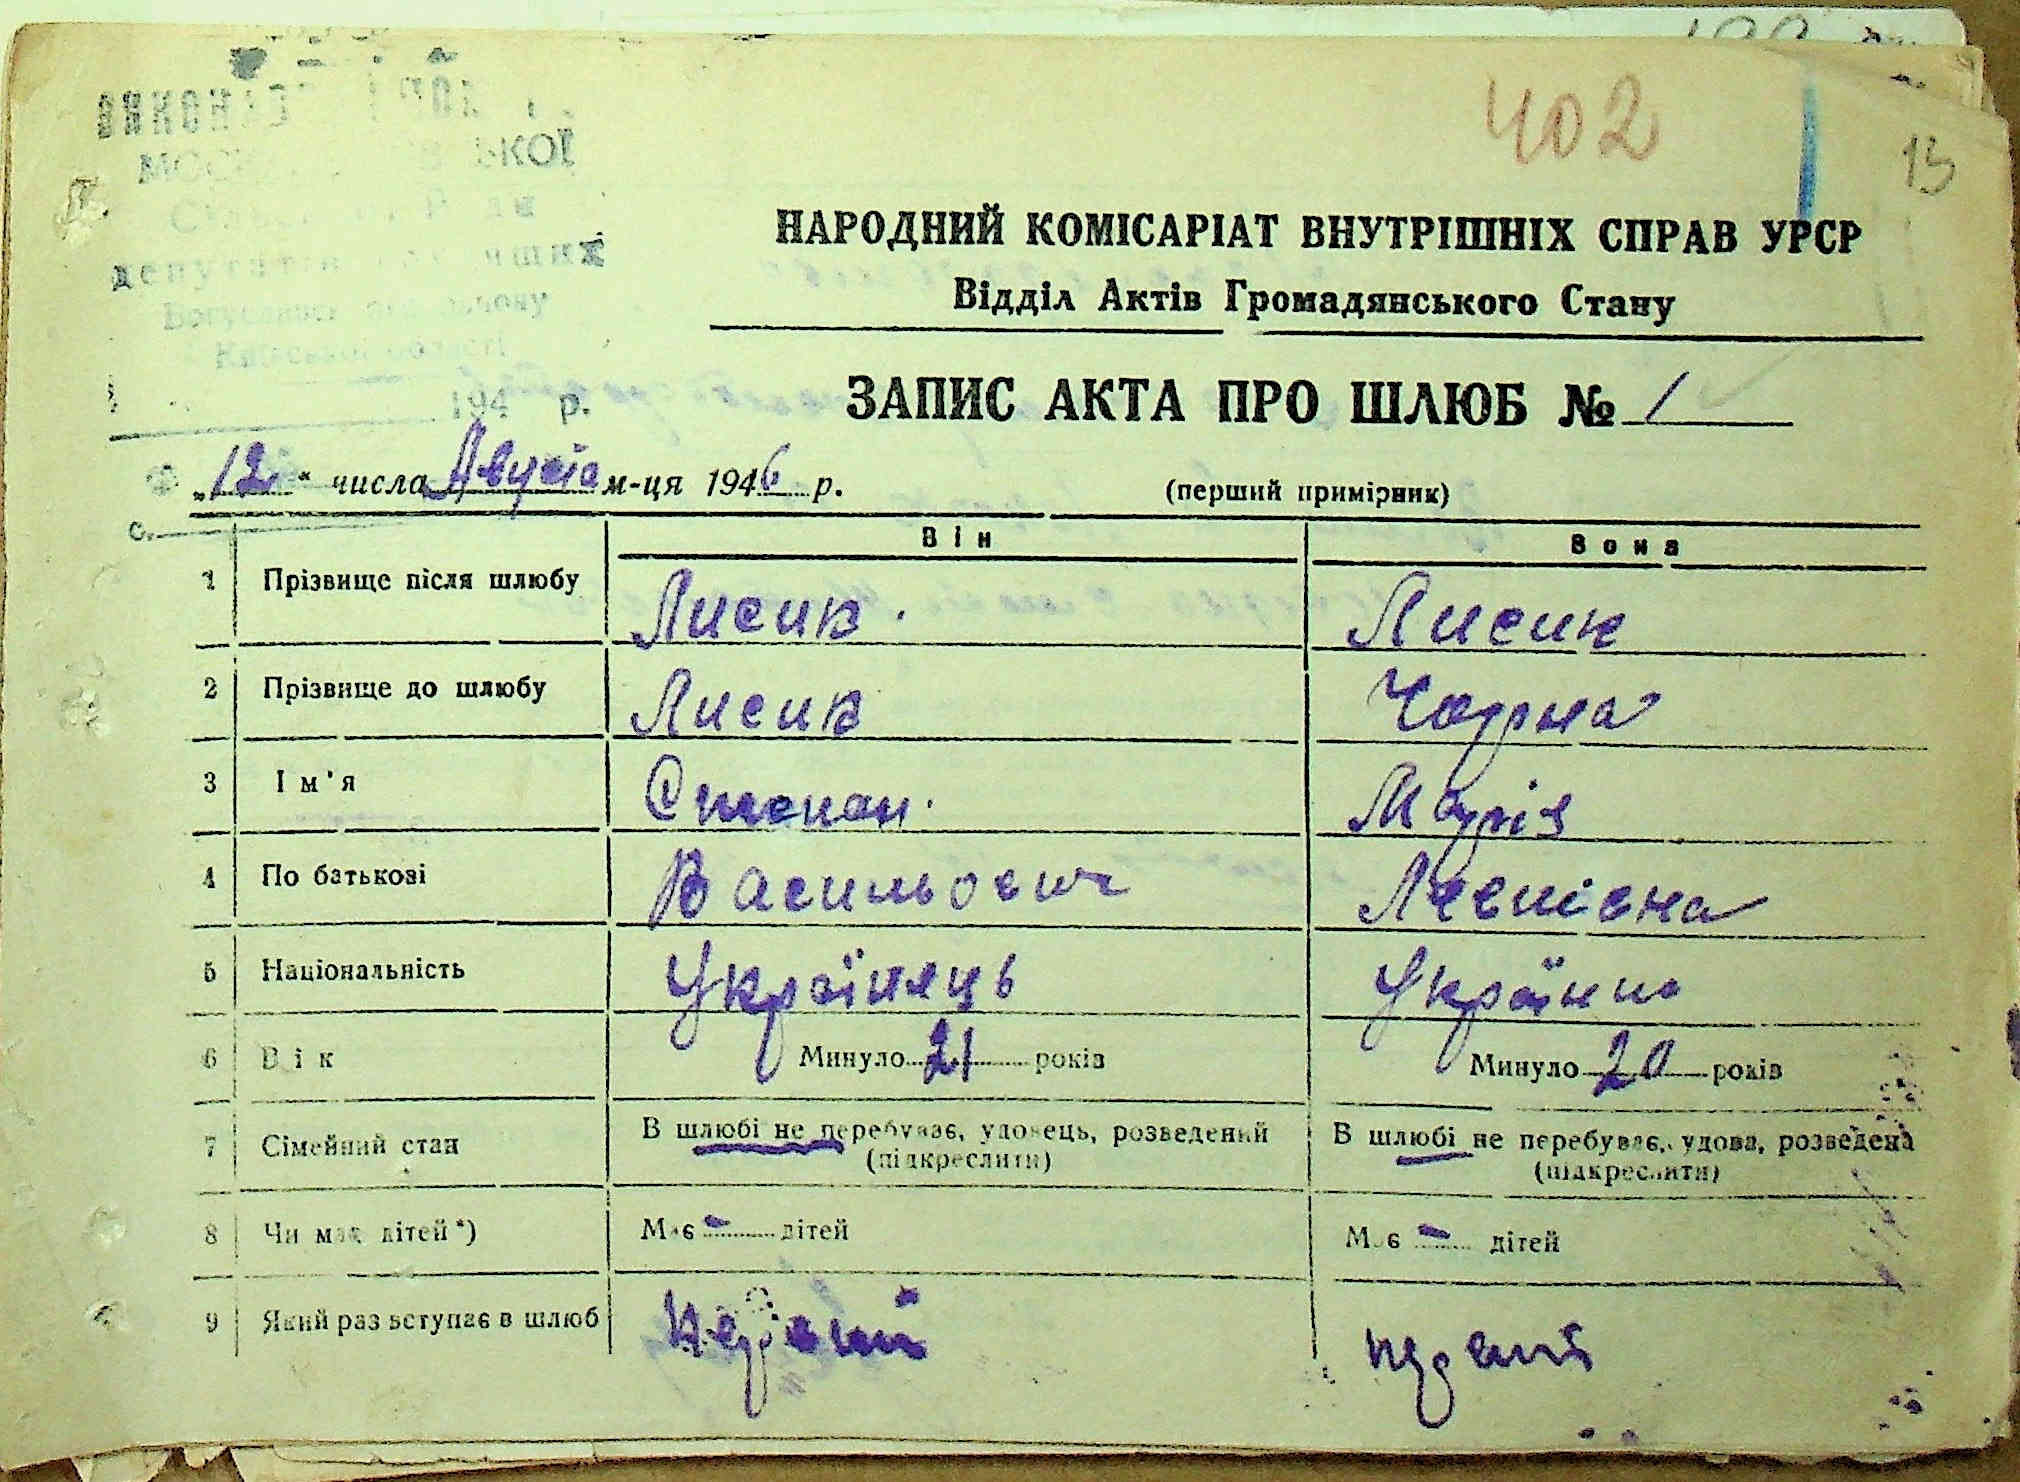 402
13
НАРОДНИЙ КОМІСАРІАТ ВНУТРІШНІХ СПРАВ УРСР
Відділ Актів Громадянського Стану
Київської області
194 р.
ЗАПИС АКТА ПРО ШЛЮБ № 1
„12“ числа Августа м-ця 1946 р.
(перший примірник)
Він Вона
1 Прізвище після шлюбу Лисик Лисик
2 Прізвище до шлюбу Лисик Чорна
3 Ім'я Степан Марія
4 По батькові Васильович
5 Національність Українець Українка
6 Вік Минуло 21 років Минуло 20 років
7 Сімейний стан В шлюбі не перебуває, удовець, розведений (підкреслити) В шлюбі не перебуває, удова, розведена (підкреслити)
8 Чи має дітей *) Має – дітей Має – дітей
9 Який раз вступає в шлюб